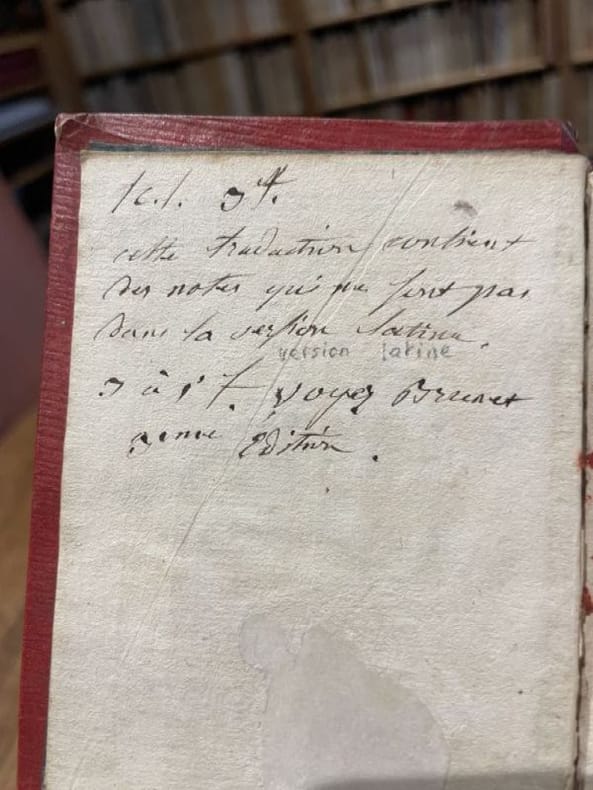 cette traduction contient
des notes qui ne sont pas
dans la version latine.
version latine
3 à 5 f. voyez Brunet
3eme Edition.